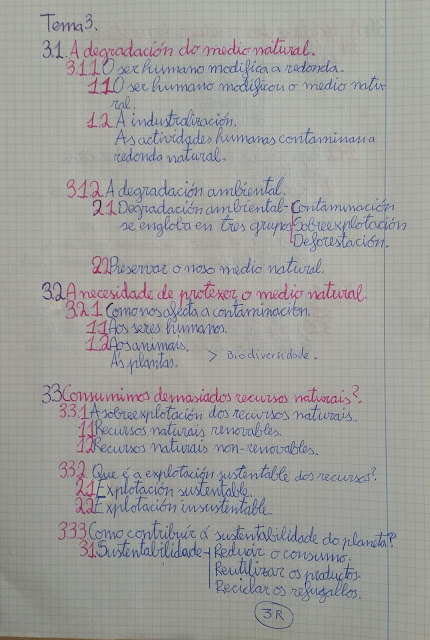 Tema 3.
3.1. A degradación do medio natural.
3.1.1 O ser humano modifica a redonda.
1.1 O ser humano modificou o medio natu-
ral.
1.2 A industralización.
As actividades humanas contaminan a
redonda natural.
3.1.2 A degradación ambiental.
2.1 Degradación ambiental- Contaminación
se engloba en tres grupos Sobreexplotación
Deforestación.
2.2 Preservar o noso medio natural.
3.2 A necesidade de protexer o medio natural.
3.2.1 Como nos afecta a contaminación.
1.1 Aos seres humanos.
1.2 Aos animais.
Ás plantas. > Biodiversidade.
3.3 Consumimos demasiados recursos naturais?
3.3.1 A sobreexplotación dos recursos naturais.
1.1 Recursos naturais renovables.
1.2 Recursos naturais non-renovables.
3.3.2 Que é a explotación sustentable dos recursos?
2.1 Explotación sustentable.
2.2 Explotación insustentable.
3.3.3 Como contribuír á sustentabilidade do planeta?
3.1 Sustentabilidade- Reducir o consumo.
Reutilizar os productos.
Reciclar os refugallos.
3R